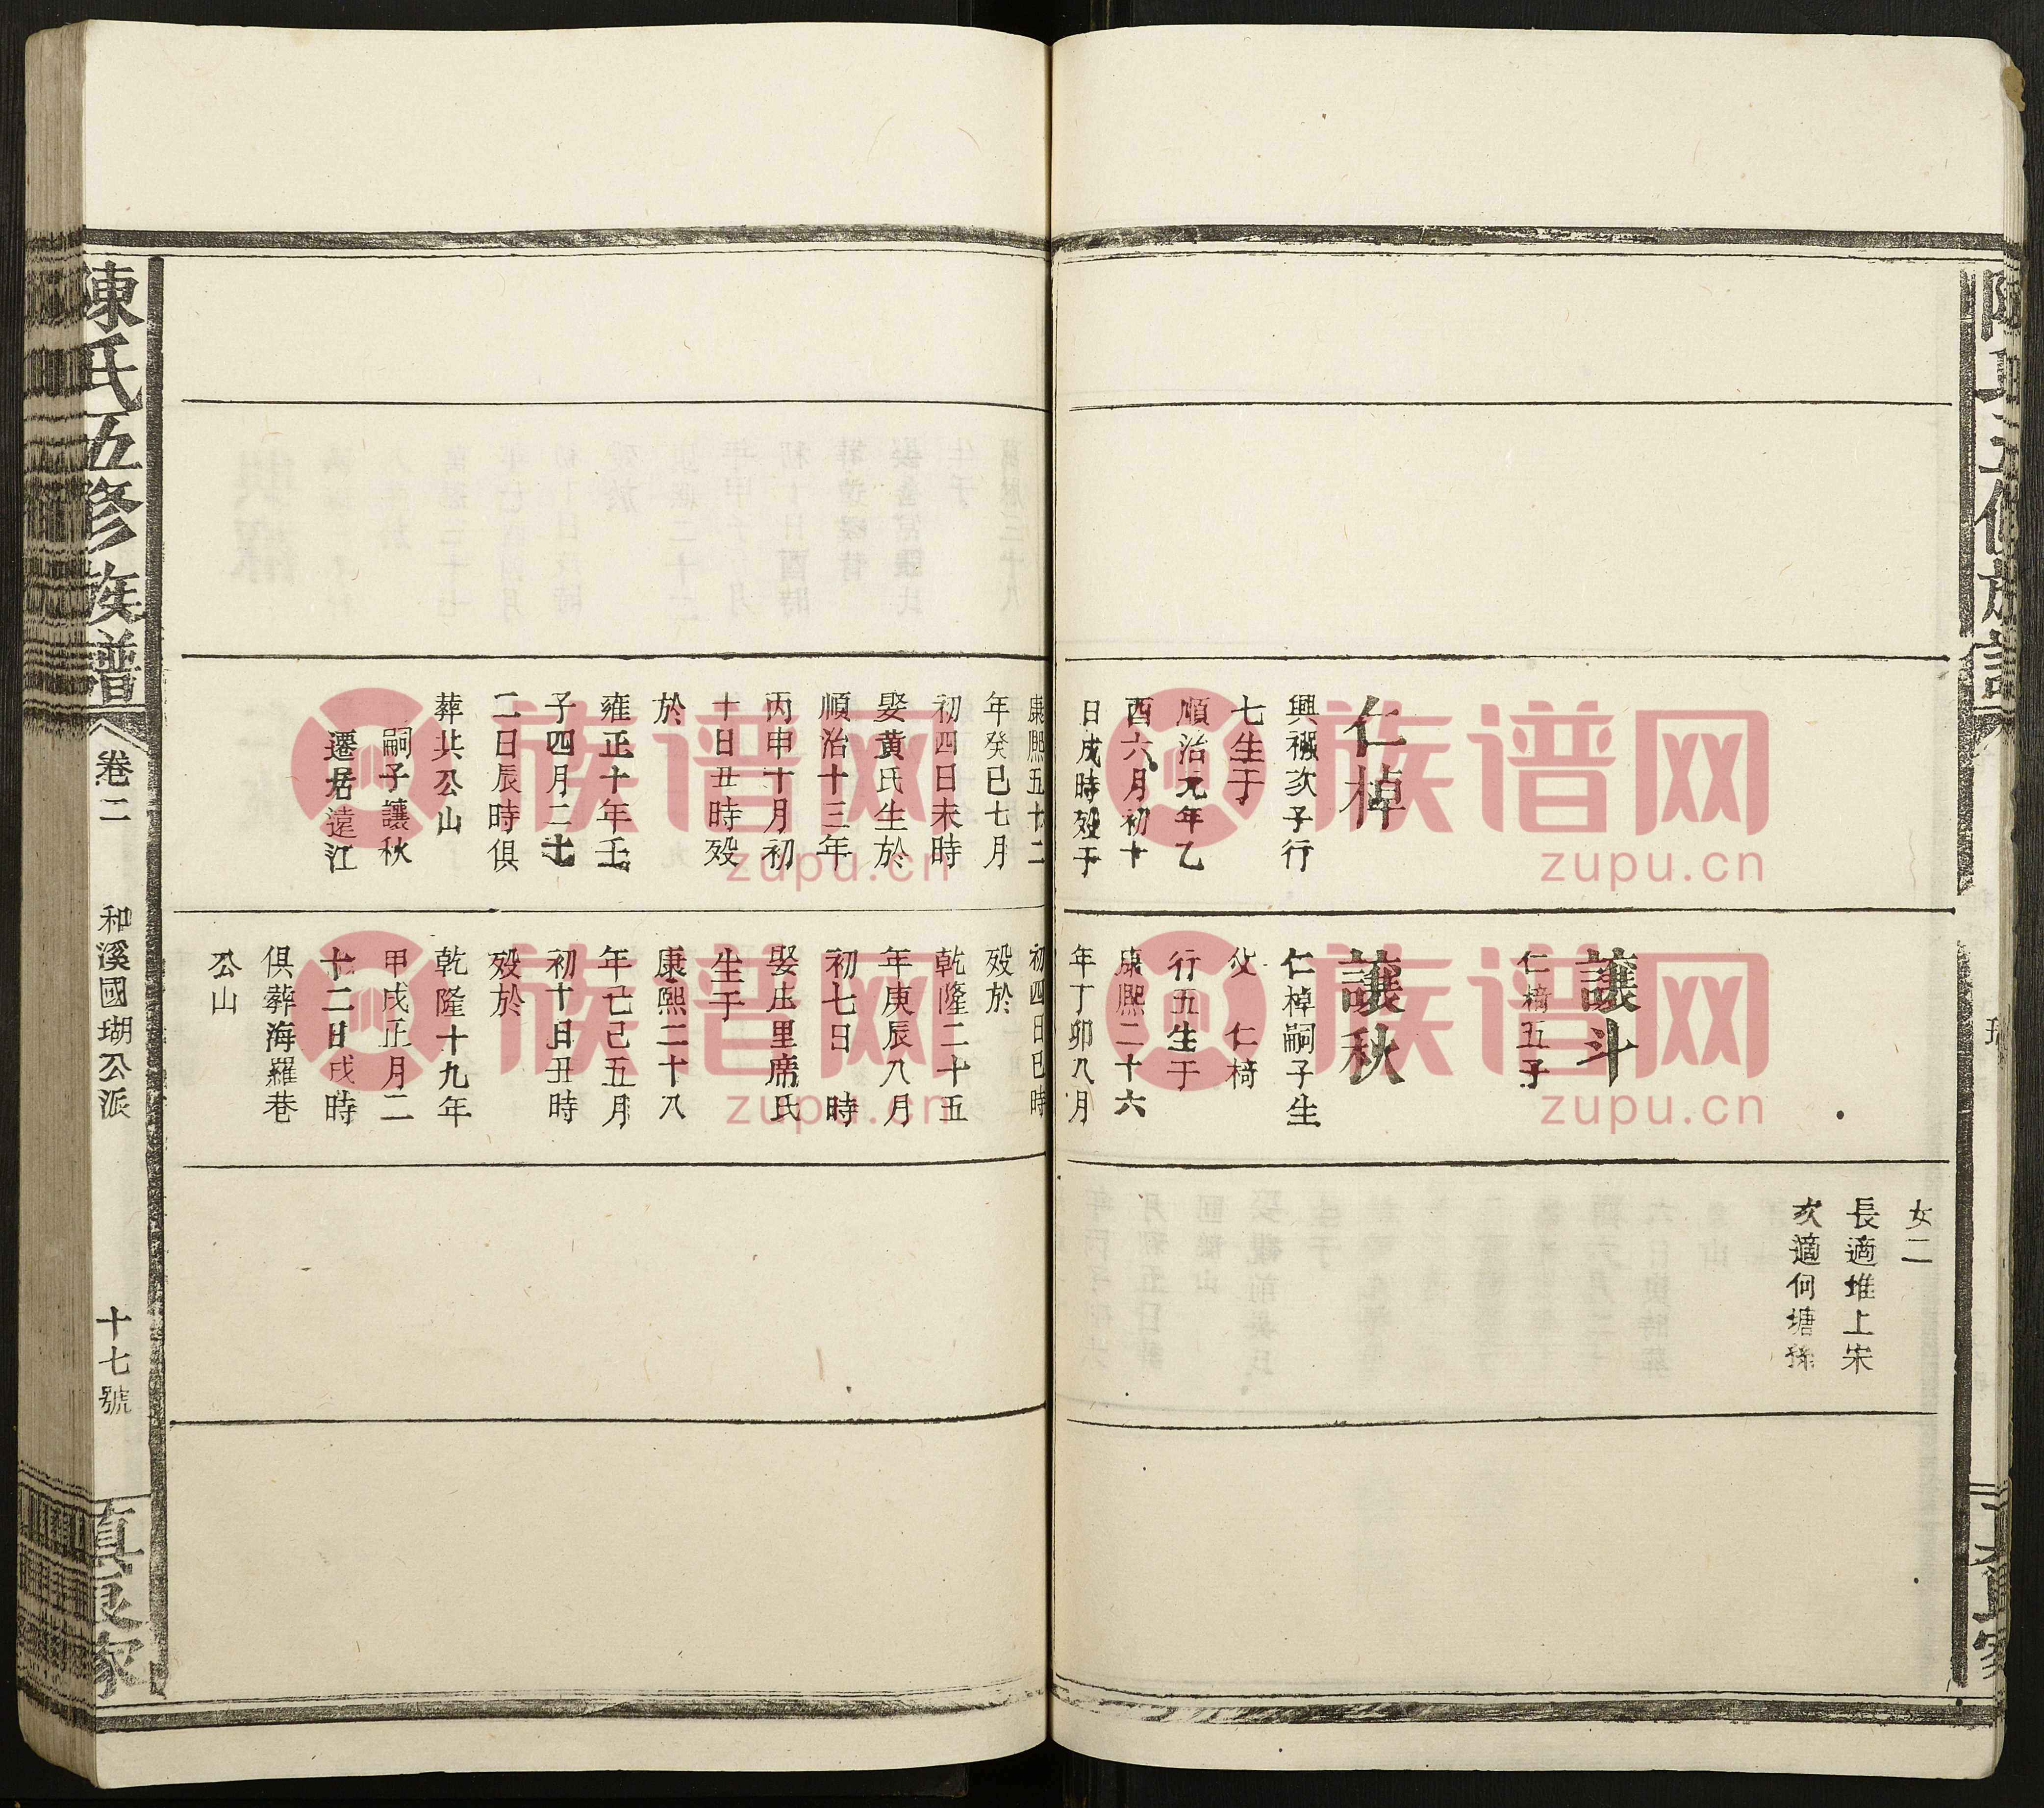 女二
長適堆上宋
次適何塘孫
仁棹
興襁次子行
七生于
順治元年乙
酉六月初十
日戌時歿于
康熙五十二
年癸巳七月
初四日未時
娶黄氏生於
順治十三年
丙申十月初
十日丑時歿
於
雍正十年壬
子四月二十
二日辰時俱
葬共公山
嗣子讓秋
遷居遠江
讓斗
仁椅五子
讓秋
仁棹嗣子生
父 仁椅
行五生于
康熙二十六
年丁卯八月
初四日巳時
歿於
乾隆二十五
年庚辰八月
初七日 時
娶庄里席氏
生于
康熙二十八
年己巳五月
初十日丑時
歿於
乾隆十九年
甲戌正月二
十二日戌時
俱葬海羅巷
公山
陳氏五修族譜
卷二
和溪國瑚公派
十七號
真良家
族谱网
zupu.cn
族谱网
zupu.cn
族谱网
zupu.cn
族谱网
zupu.cn